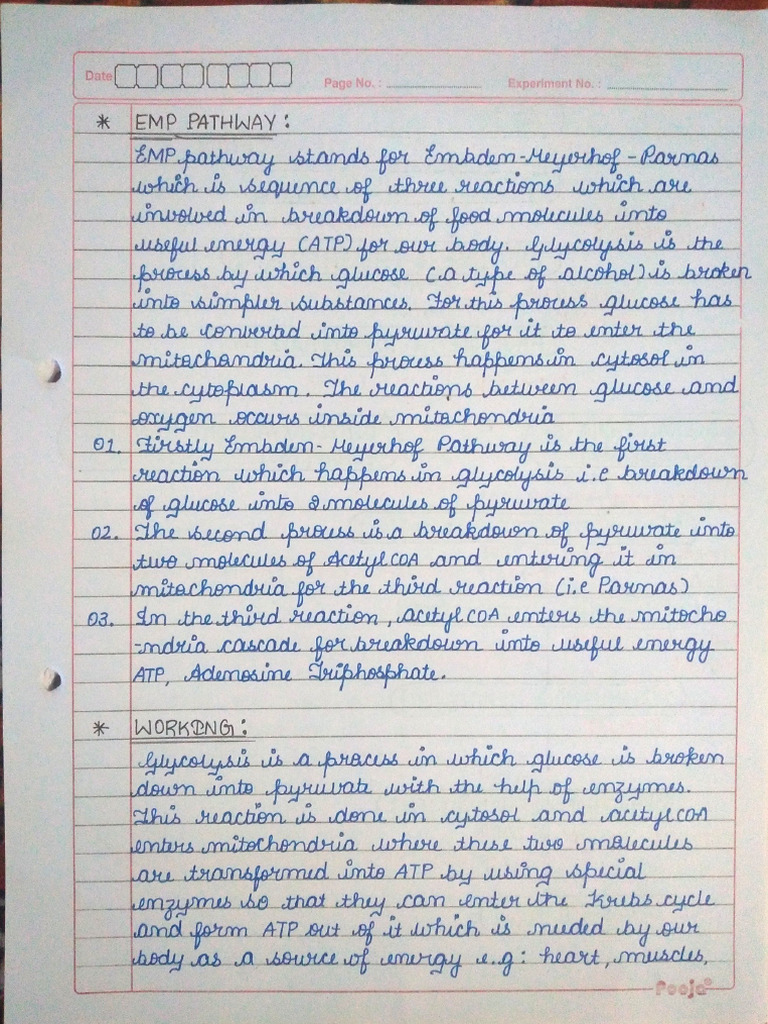 Date
Page No. : Experiment No. :
* EMP PATHWAY :
EMP pathway stands for Embden-Meyerhof-Parnas
which is sequence of three reactions which are
involved in breakdown of food molecules into
useful energy (ATP) for our body. Glycolysis is the
process by which glucose (a type of alcohol) is broken
into simpler substances. For this process glucose has
to be converted into pyruvate for it to enter the
mitochondria. This process happens in cytosol in
the cytoplasm. The reactions between glucose and
oxygen occurs inside mitochondria
01. Firstly Embden-Meyerhof Pathway is the first
reaction which happens in glycolysis i.e breakdown
of glucose into 2 molecules of pyruvate
02. The second process is a breakdown of pyruvate into
two molecules of Acetyl COA and entering it in
mitochondria for the third reaction (i.e Parnas)
03. In the third reaction, acetyl COA enters the mitocho
-ndria cascade for breakdown into useful energy
ATP, Adenosine Triphosphate.
* WORKING :
Glycolysis is a process in which glucose is broken
down into pyruvate with the help of enzymes.
This reaction is done in cytosol and acetyl COA
enters mitochondria where these two molecules
are transformed into ATP by using special
enzymes so that they can enter the Krebs cycle
and form ATP out of it which is needed by our
body as a source of energy e.g: heart, muscles,
Pooja